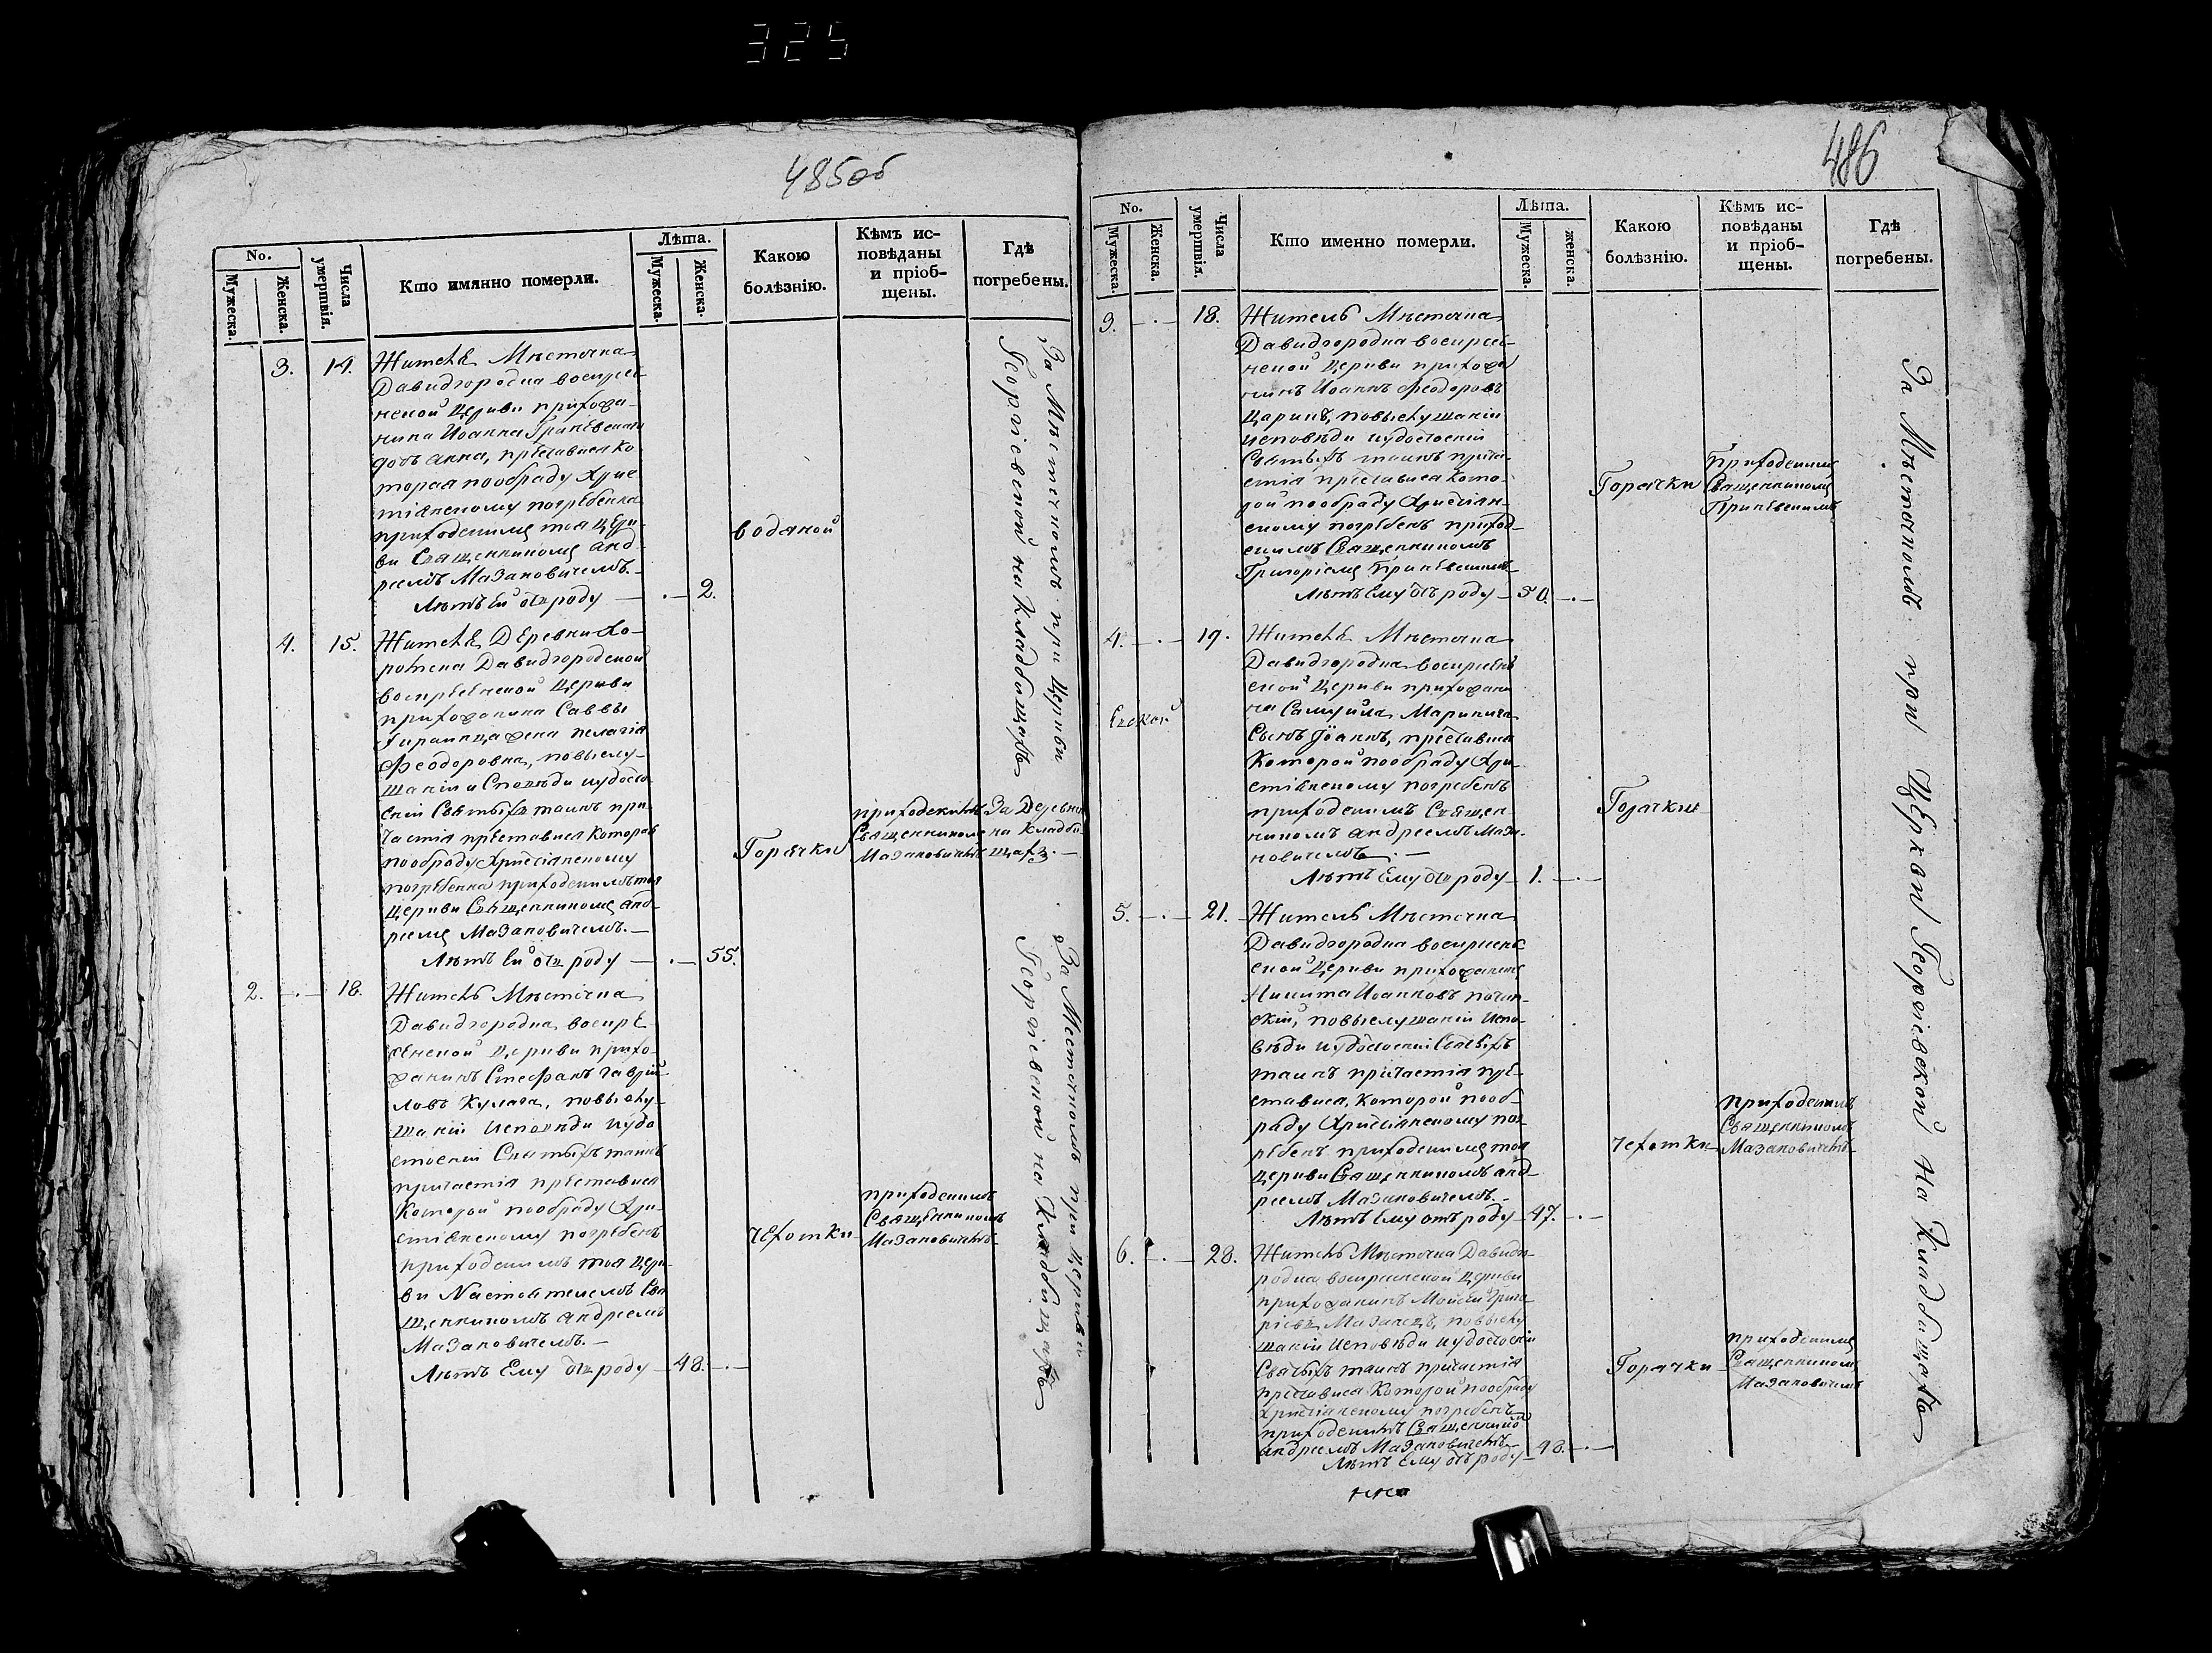 325
485об
No.
Мужеска.
Женска.
Числа умертвія.
Кто имянно померли.
Лѣта.
Мужеска.
Женска.
Какою
болѣзнію.
Кѣмъ ис-
повѣданы
и пріоб-
щены.
Гдѣ
погребены.
3. 14. Жителя Мѣстечка
Давидгородка воскресе-
нской Церкви прихожа-
нина Иоанна
дочь Анна, преставися ко
торая пообряду Хрис
тіянскому погребенна
приходскимъ тоя Цер-
кви Священникомъ Анд
реемъ Мазановичемъ.
Лѣтъ Ей отъ роду — 2.
водяной
4. 15. Жителя Деревни Хо-
ромска Давидгородской
воскресенской Церкви
прихожанина Саввы
жена пелагія
Феодоровна, повыслу-
шаніи Споведи иудосто
еніи Святыхъ таинъ при
частія преставися которая
пообряду Христіянскому
погребенна приходскимъ тоя
Церкви Священникомъ Анд
реемъ Мазановичемъ. —
Лѣтъ Ей отъ роду — 55.
Горячки
приходскимъ
Священникомъ
Мазановичемъ
За Деревнею
на кладби-
щахъ. —
2. 18. Житель Мѣстечка
Давидгородка воскре
сенской Церкви прихо-
жанинъ Стефанъ Гаврій-
ловъ Кулага, повыслу-
шаніи Исповѣди иудо
стоеніи Святыхъ таинъ
причастія преставися
Которой пообряду Хри-
стіянскому погребенъ
приходскимъ тоя Цер-
кви Настоятелемъ Свя
щенникомъ Андреемъ
Мазановичемъ. —
Лѣтъ Ему отъ роду — 48.
чехотки
приходскимъ
Священникомъ
Мазановичемъ
За Мѣстечкомъ при Церкви
Георгіевской на Кладбищахъ
За Местечкомъ при Церкви
Георгіевской на Кладбищахъ
486
No.
Мужеска.
Женска.
Числа умертвія.
Кто именно померли.
Лѣта.
Мужеска.
женска.
Какою
болѣзнію.
Кѣмъ ис-
повѣданы
и пріоб-
щены.
Гдѣ
погребены.
3. 18. Житель Мѣстечка
Давидгородка воскресе-
нской Церкви прихожа
нинъ Иоаннъ Феодоровъ
Царикъ, повыслушаніи
исповѣди иудостоеніи
Святыхъ таинъ прича-
стія преставися кото-
рой пообряду Христіян-
скому погребенъ приход-
скимъ Священникомъ
Григоріемъ
Лѣтъ Ему отъ роду — 50.
Горячки
Приходскимъ
Священникомъ
4. 19. Жителя Мѣстечка
Давидгородка воскресен
ской Церкви прихожани
на Самуйла Маринича
Сынъ Іоаннъ, преставися
Которой пообряду Хри-
стіянскому погребенъ
приходскимъ Священ-
никомъ Андреемъ Маза-
новичемъ. —
Лѣтъ Ему отъ роду — 1.
Горячки
5. 21. Житель Мѣстечка
Давидгородка воскресен
ской Церкви прихожанинъ
Никита Иоанновъ
повыслушаніи Испо-
вѣди иудостоеніи Святыхъ
таинъ причастія пре-
ставися, Которой пооб-
ряду Христіянскому пог
ребенъ приходскимъ тоя
Церкви Священникомъ Анд-
реемъ Мазановичемъ. —
Лѣтъ Ему отъ роду — 47.
чехотки
приходскимъ
Священникомъ
Мазановичемъ
6. 28. Житель Мѣстечка Давидго-
родка воскресенской Церкви
прихожанинъ Мойсей Григо-
ріевъ повыслу
шаніи Исповѣди иудостоеніи
Святыхъ таинъ причастія
преставися Которой пообряду
Христіянскому погребенъ
приходскимъ Священникомъ
Андреемъ Мазановичемъ
Лѣтъ Ему отъ роду — 48.
Горячки
приходскимъ
Священникомъ
Мазановичемъ
За Мѣстечкомъ при Церкви Георгіевской на Кладбищахъ